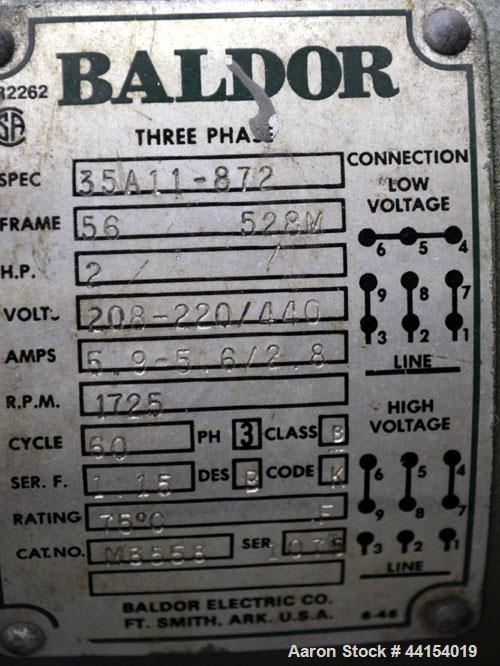 R2262 BALDOR
SA
THREE PHASE
SPEC 35A11-872
FRAME 56 528M
H.P. 2
VOLTS 208-220/440
AMPS 5.9-5.6/2.8
R.P.M. 1725
CYCLE 60 PH 3 CLASS B
SER. F. 1.15 DES B CODE K
RATING 75°C
CAT.NO. M3558 SER 1075
CONNECTION
LOW
VOLTAGE
6 5 4
9 8 7
3 2 1
LINE
HIGH
VOLTAGE
6 5 4
9 8 7
3 2 1
LINE
BALDOR ELECTRIC CO.
FT. SMITH, ARK. U.S.A.
Aaron Stock # 44154019